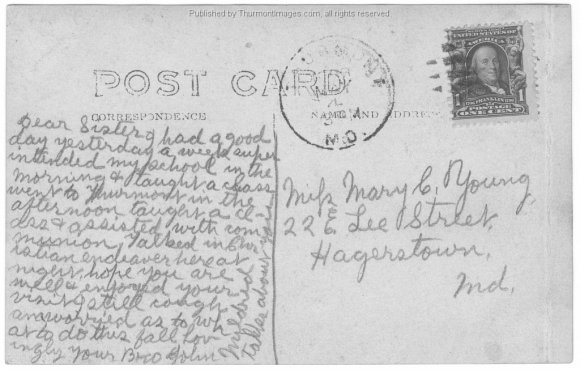 Published by Thurmontimages.com, all rights reserved
UNITED STATES OF AMERICA
FRANKLIN
POSTAGE
ONE CENT
POST CARD
CORRESPONDENCE
NAME AND ADDRESS
MD.
Dear Sister had a good
day yesterday a week super
intended my school in the
morning & taught a class
went to Thurmont in the
afternoon taught a cl-
ass & assisted with com
munion, Talked in Chr
istian endeavor here at
night, hope you are
well & enjoyed your
visit, I still cough
am worried as to wh
at to do this fall lov
ingly Your Bro John
Mildred
talks about you
Miss Mary C. Young,
22 E. Lee Street,
Hagerstown,
Md.